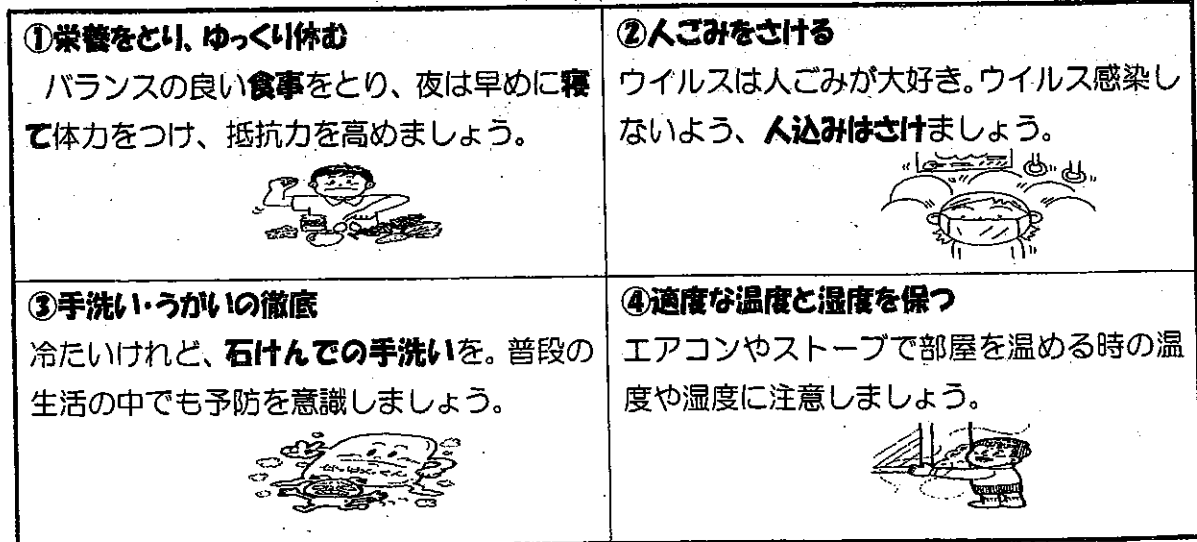 ①栄養をとり、ゆっくり休む
バランスの良い食事をとり、夜は早めに寝
て体力をつけ、抵抗力を高めましょう。
②人ごみをさける
ウイルスは人ごみが大好き。ウイルス感染し
ないよう、人込みはさけましょう。
③手洗い・うがいの徹底
冷たいけれど、石けんでの手洗いを。普段の
生活の中でも予防を意識しましょう。
せっけん
④適度な温度と湿度を保つ
エアコンやストーブで部屋を温める時の温
度や湿度に注意しましょう。